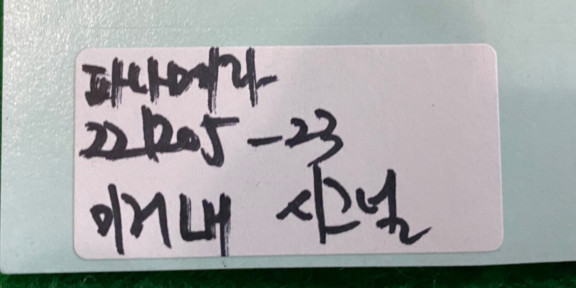 파나메라
221205-23
미거내 시그널